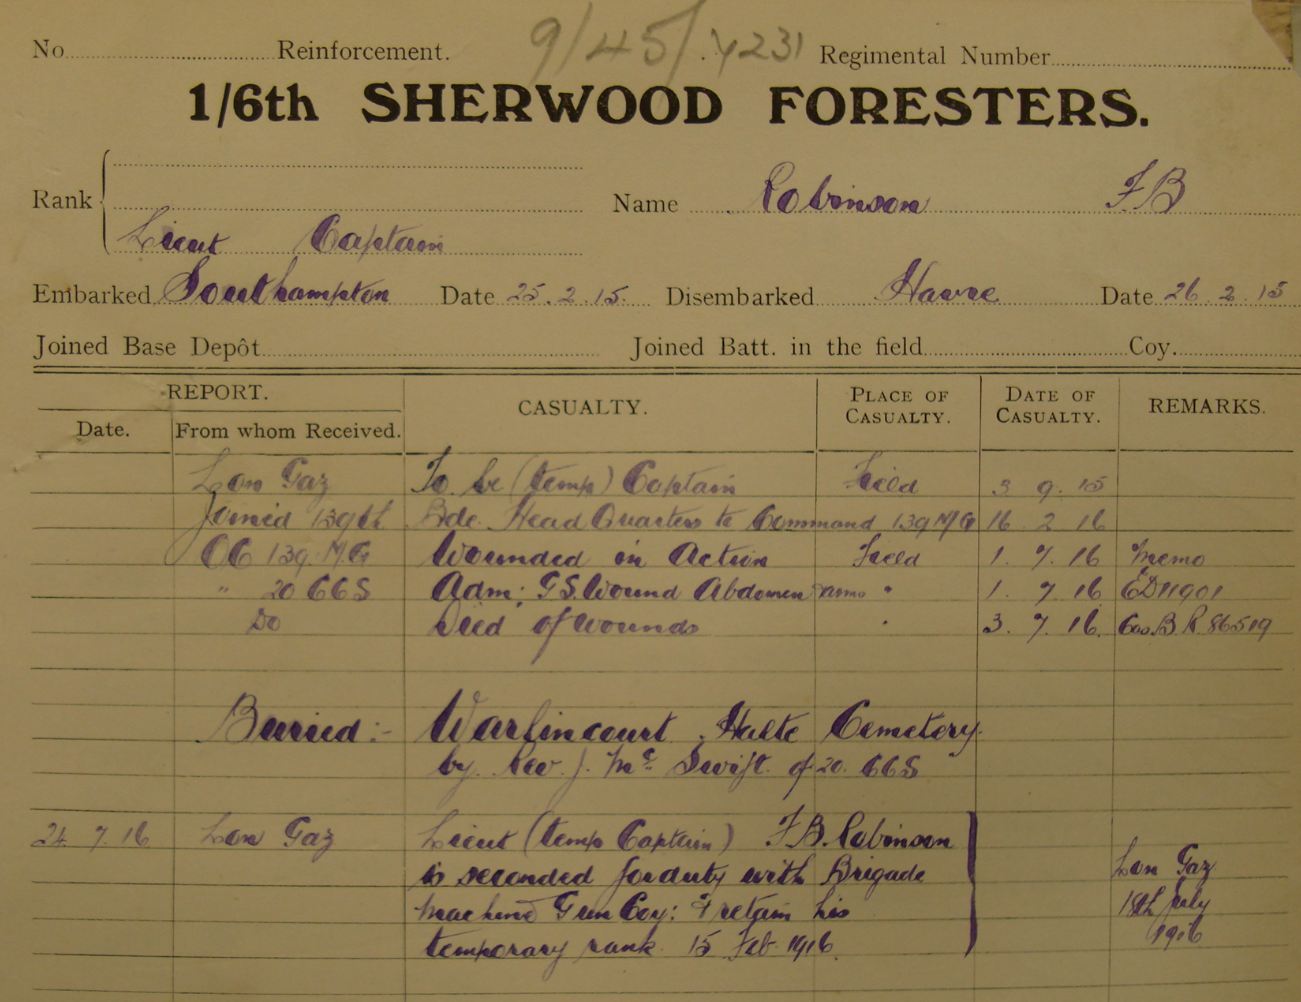 No. Reinforcement. 9/45/.4231 Regimental Number
1/6th SHERWOOD FORESTERS.
Rank Lieut Captain Name Robinson F B
Embarked Southampton Date 25.2.15. Disembarked Havre Date 26.2.15
Joined Base Depôt Joined Batt. in the field Coy.
REPORT. CASUALTY. PLACE OF CASUALTY. DATE OF CASUALTY. REMARKS.
Date. From whom Received.
Lon Gaz To be (temp) Captain Field 3 9 15
Joined 139th Bde. Head Quarters to Command 139 M/G 16 2 16
OC 139. M.G Wounded in Action Field 1. 7. 16 Memo
" 20 CCS Adm: G.S. Wound Abdomen " 1. 7. 16 ED 11901
Do Died of wounds " 3. 7. 16. Cas. B. R. 86519
Buried:- Warlincourt Halte Cemetery.
by Rev. J. Mc Swift of 20. CCS
24. 7. 16 Lon Gaz Lieut (temp Captain) F.B. Robinson
is seconded for duty with Brigade Lon Gaz
Machine Gun Coy: & retain his 18th July
temporary rank 15 Feb. 1916. 1916